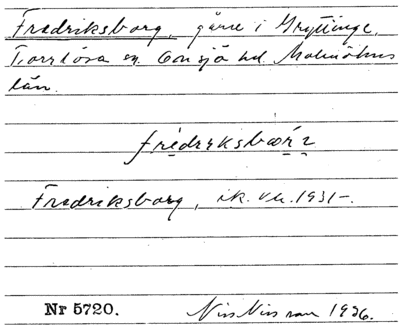 Fredriksborg, gård i Gryttinge,
Torrlösa sn Onsjö hd. Malmöhus
län.
frédrɪksbɔrɪ
Fredriksborg, ik. vh. 1931-.
Nr 5720. Nils Nilsson 1936.